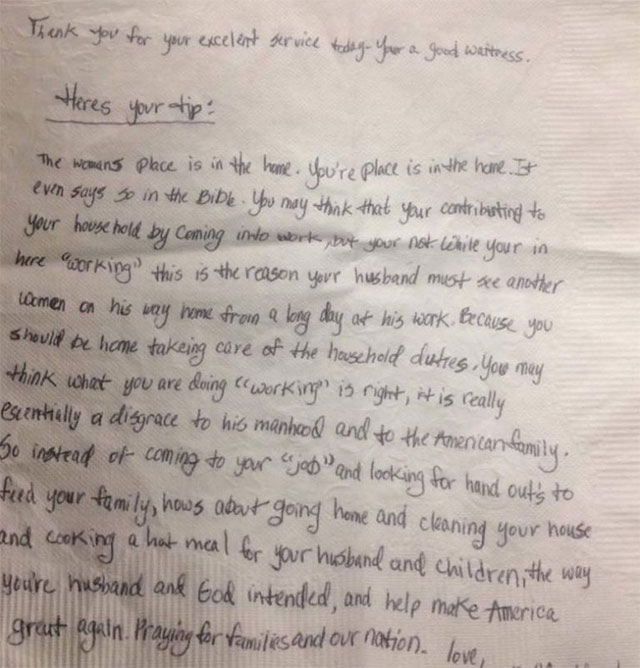 Thank you for your excelent service today- Your a good waitress.
Heres your tip:
The womans place is in the home. You're place is in the home. It
even says so in the Bible. You may think that your contributing to
your household by coming into work, but your not. While your in
here "working" this is the reason your husband must see another
women on his way home from a long day at his work. Because you
should be home takeing care of the household duties. You may
think what you are doing "working" is right, it is really
essentially a disgrace to his manhood and to the American family.
So instead of coming to your "job" and looking for hand out's to
feed your family, hows about going home and cleaning your house
and cooking a hot meal for your husband and children, the way
you're husband and God intended, and help make America
great again. Praying for families and our nation- love,